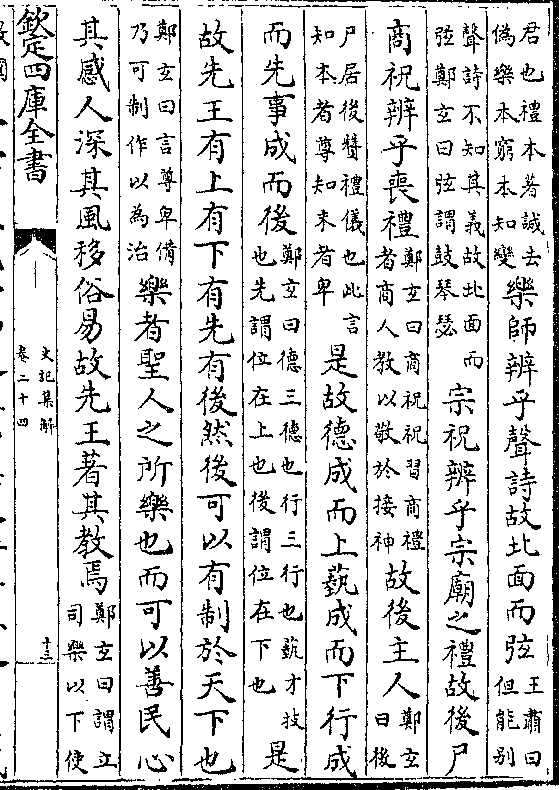 君也禮本著誠去
偽樂本窮本知變
樂師辨乎聲詩故北面而弦
王肅曰
但能别
聲詩不知其義故北面而
弦鄭玄曰弦謂鼓琴瑟
宗祝辨乎宗廟之禮故後尸
商祝辨乎喪禮
鄭玄曰商祝祝習商禮
者商人教以敬於接神
故後主人
鄭玄
曰後
尸居後贊禮儀也此言
知本者尊知末者卑
是故德成而上藝成而下行成
而先事成而後
鄭玄曰德三德也行三行也藝才技
也先謂位在上也後謂位在下也
是
故先王有上有下有先有後然後可以有制於天下也
鄭玄曰言尊卑備
乃可制作以為治
樂者聖人之所樂也而可以善民心
其感人深其風移俗易故先王著其教焉
鄭玄曰謂立
司樂以下使
欽定四庫全書
史記集解
卷二十四
十三